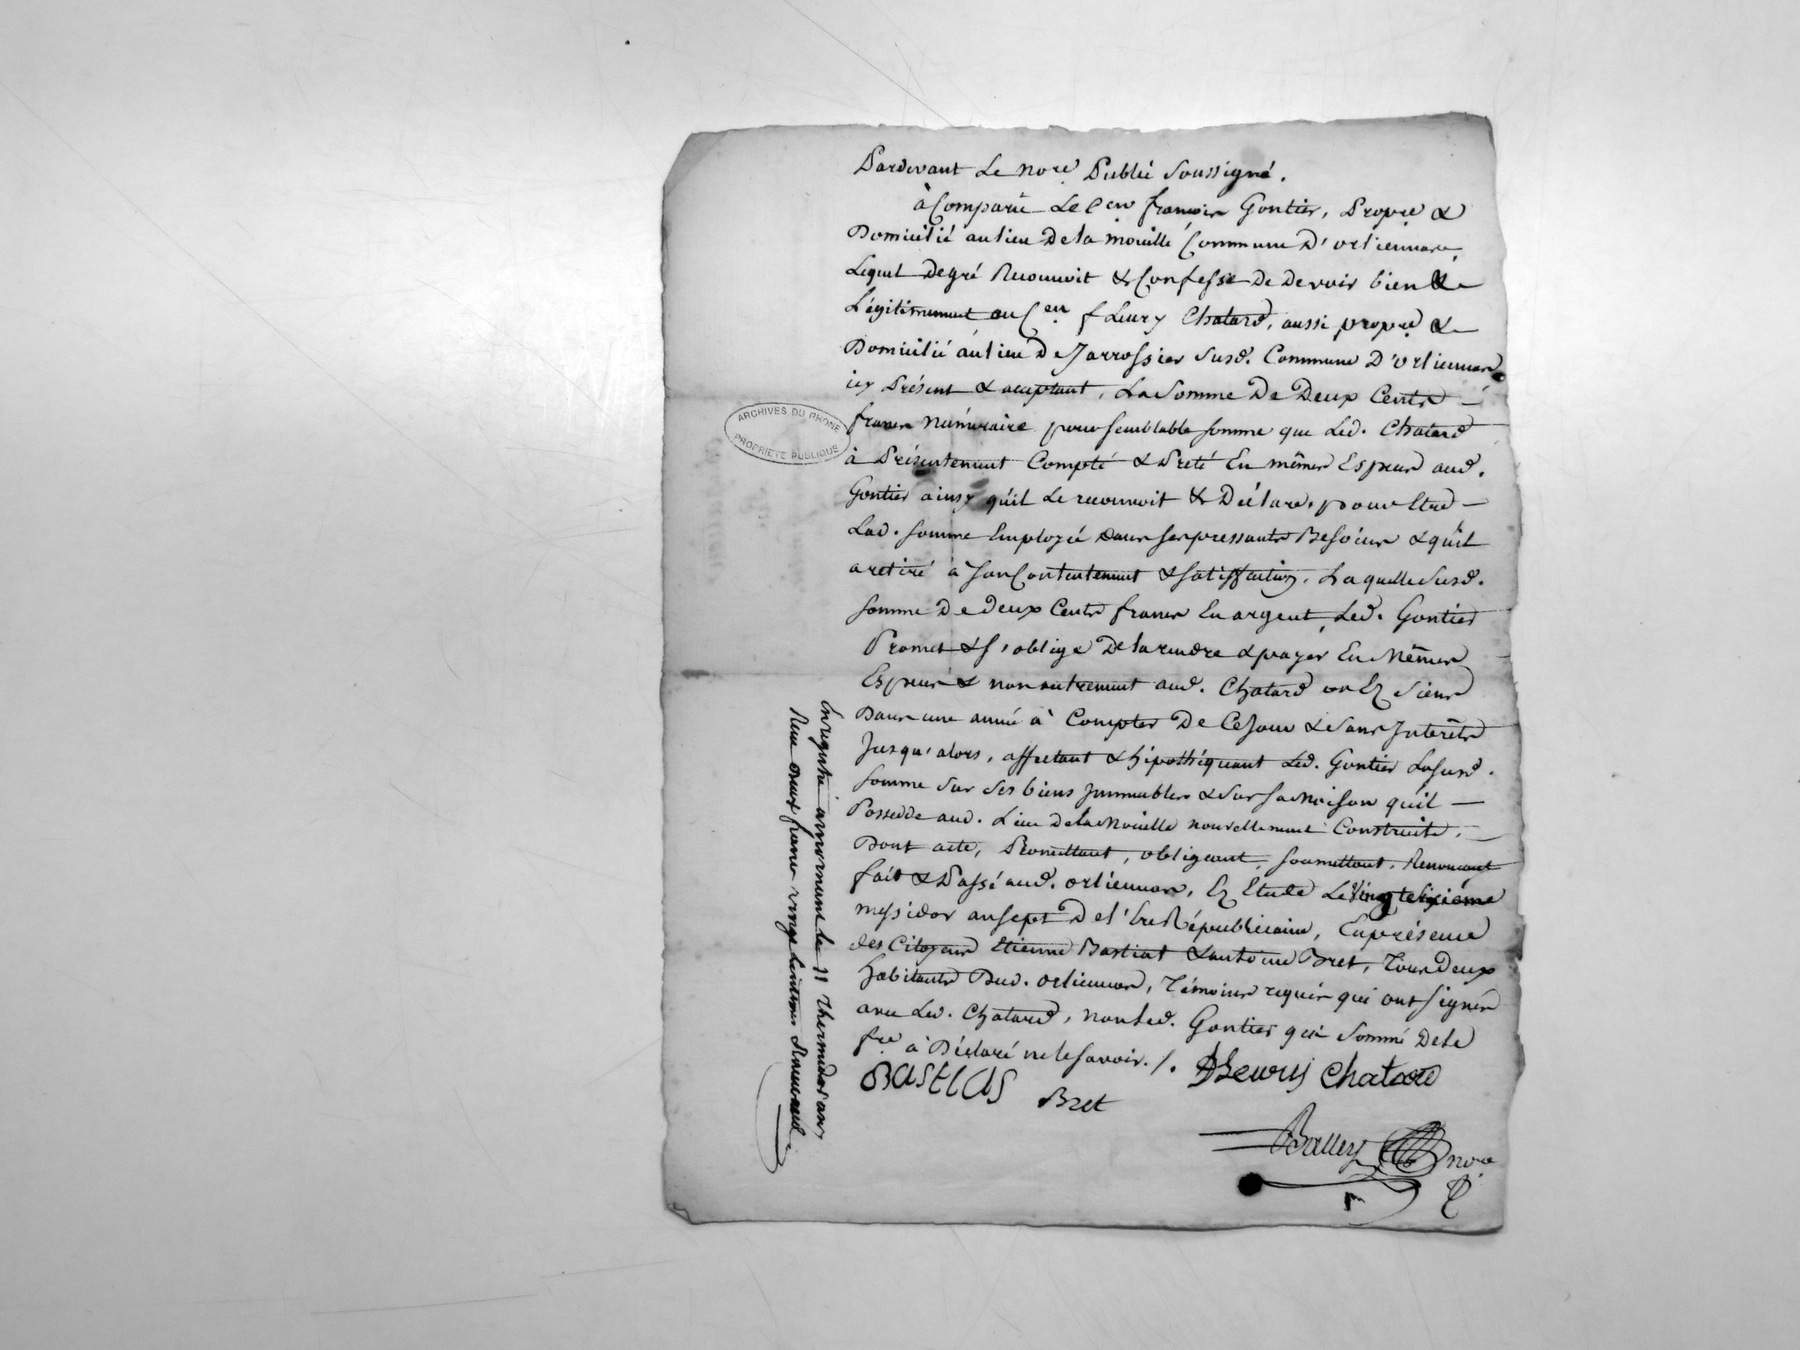 Pardevant Le nore Public Soussigné.
à Comparu Le Cen françois Gontier, Propre &
Domicilié au lieu De la Mouille Commune D'orliennas,
Lequel De gré Reconnoit & Confesse De Devoir bien &
Légitimement au Cen fleury Chatard, aussi propre &
Domicilié au lieu De Jarrossier Susd. Commune D'orliennas
icy Présent & acceptant, La Somme De Deux Cents
francs Numéraire pour semblable somme que Led. Chatard
à Présentement Compté & Preté En mêmes Especes aud.
Gontier ainsy qu'il Le reconnoit & Déclare, pour Etre
Lad. somme Employée dans ses pressants Besoins & qu'il
a retiré à son Contentement & satisffaction, Laquelle Susd.
somme De deux Cents francs En argent, Led. Gontier
Promet & s'oblige De la rendre & payer En Mêmes
Especes & non autrement aud. Chatard ou Ez Siens
Dans une année à Compter De Ce Jour & sans Interêts
Jusqu'alors, affectant & hipothéquant Led. Gontier La susd.
somme sur ses biens Immeubles & sur sa Maison qu'il
Possedde aud. Lieu de la Mouille nouvellement Construite.
Dont acte, Promettant, obligeant, soumettant, Renonçant
fait & Passé aud. orliennas, Ez Etude Le Vingt Sixième
messidor an sept De l'Ere Républicaine, En présence
des Citoyens Etienne Bastiat & antoine Bret, Tous Deux
habitants Dud. orliennas, Témoins requis qui ont signés
avec Led. Chatard, non Led. Gontier qui Sommé De le
fre à Déclaré ne le savoir. /.
fleury Chatard
BASTIAS
Bret
Balley nore
P
Enregistré à mornant le 11 Thermidor an 7
Reçu deux francs vingt centimes
ARCHIVES DU RHONE
PROPRIETE PUBLIQUE